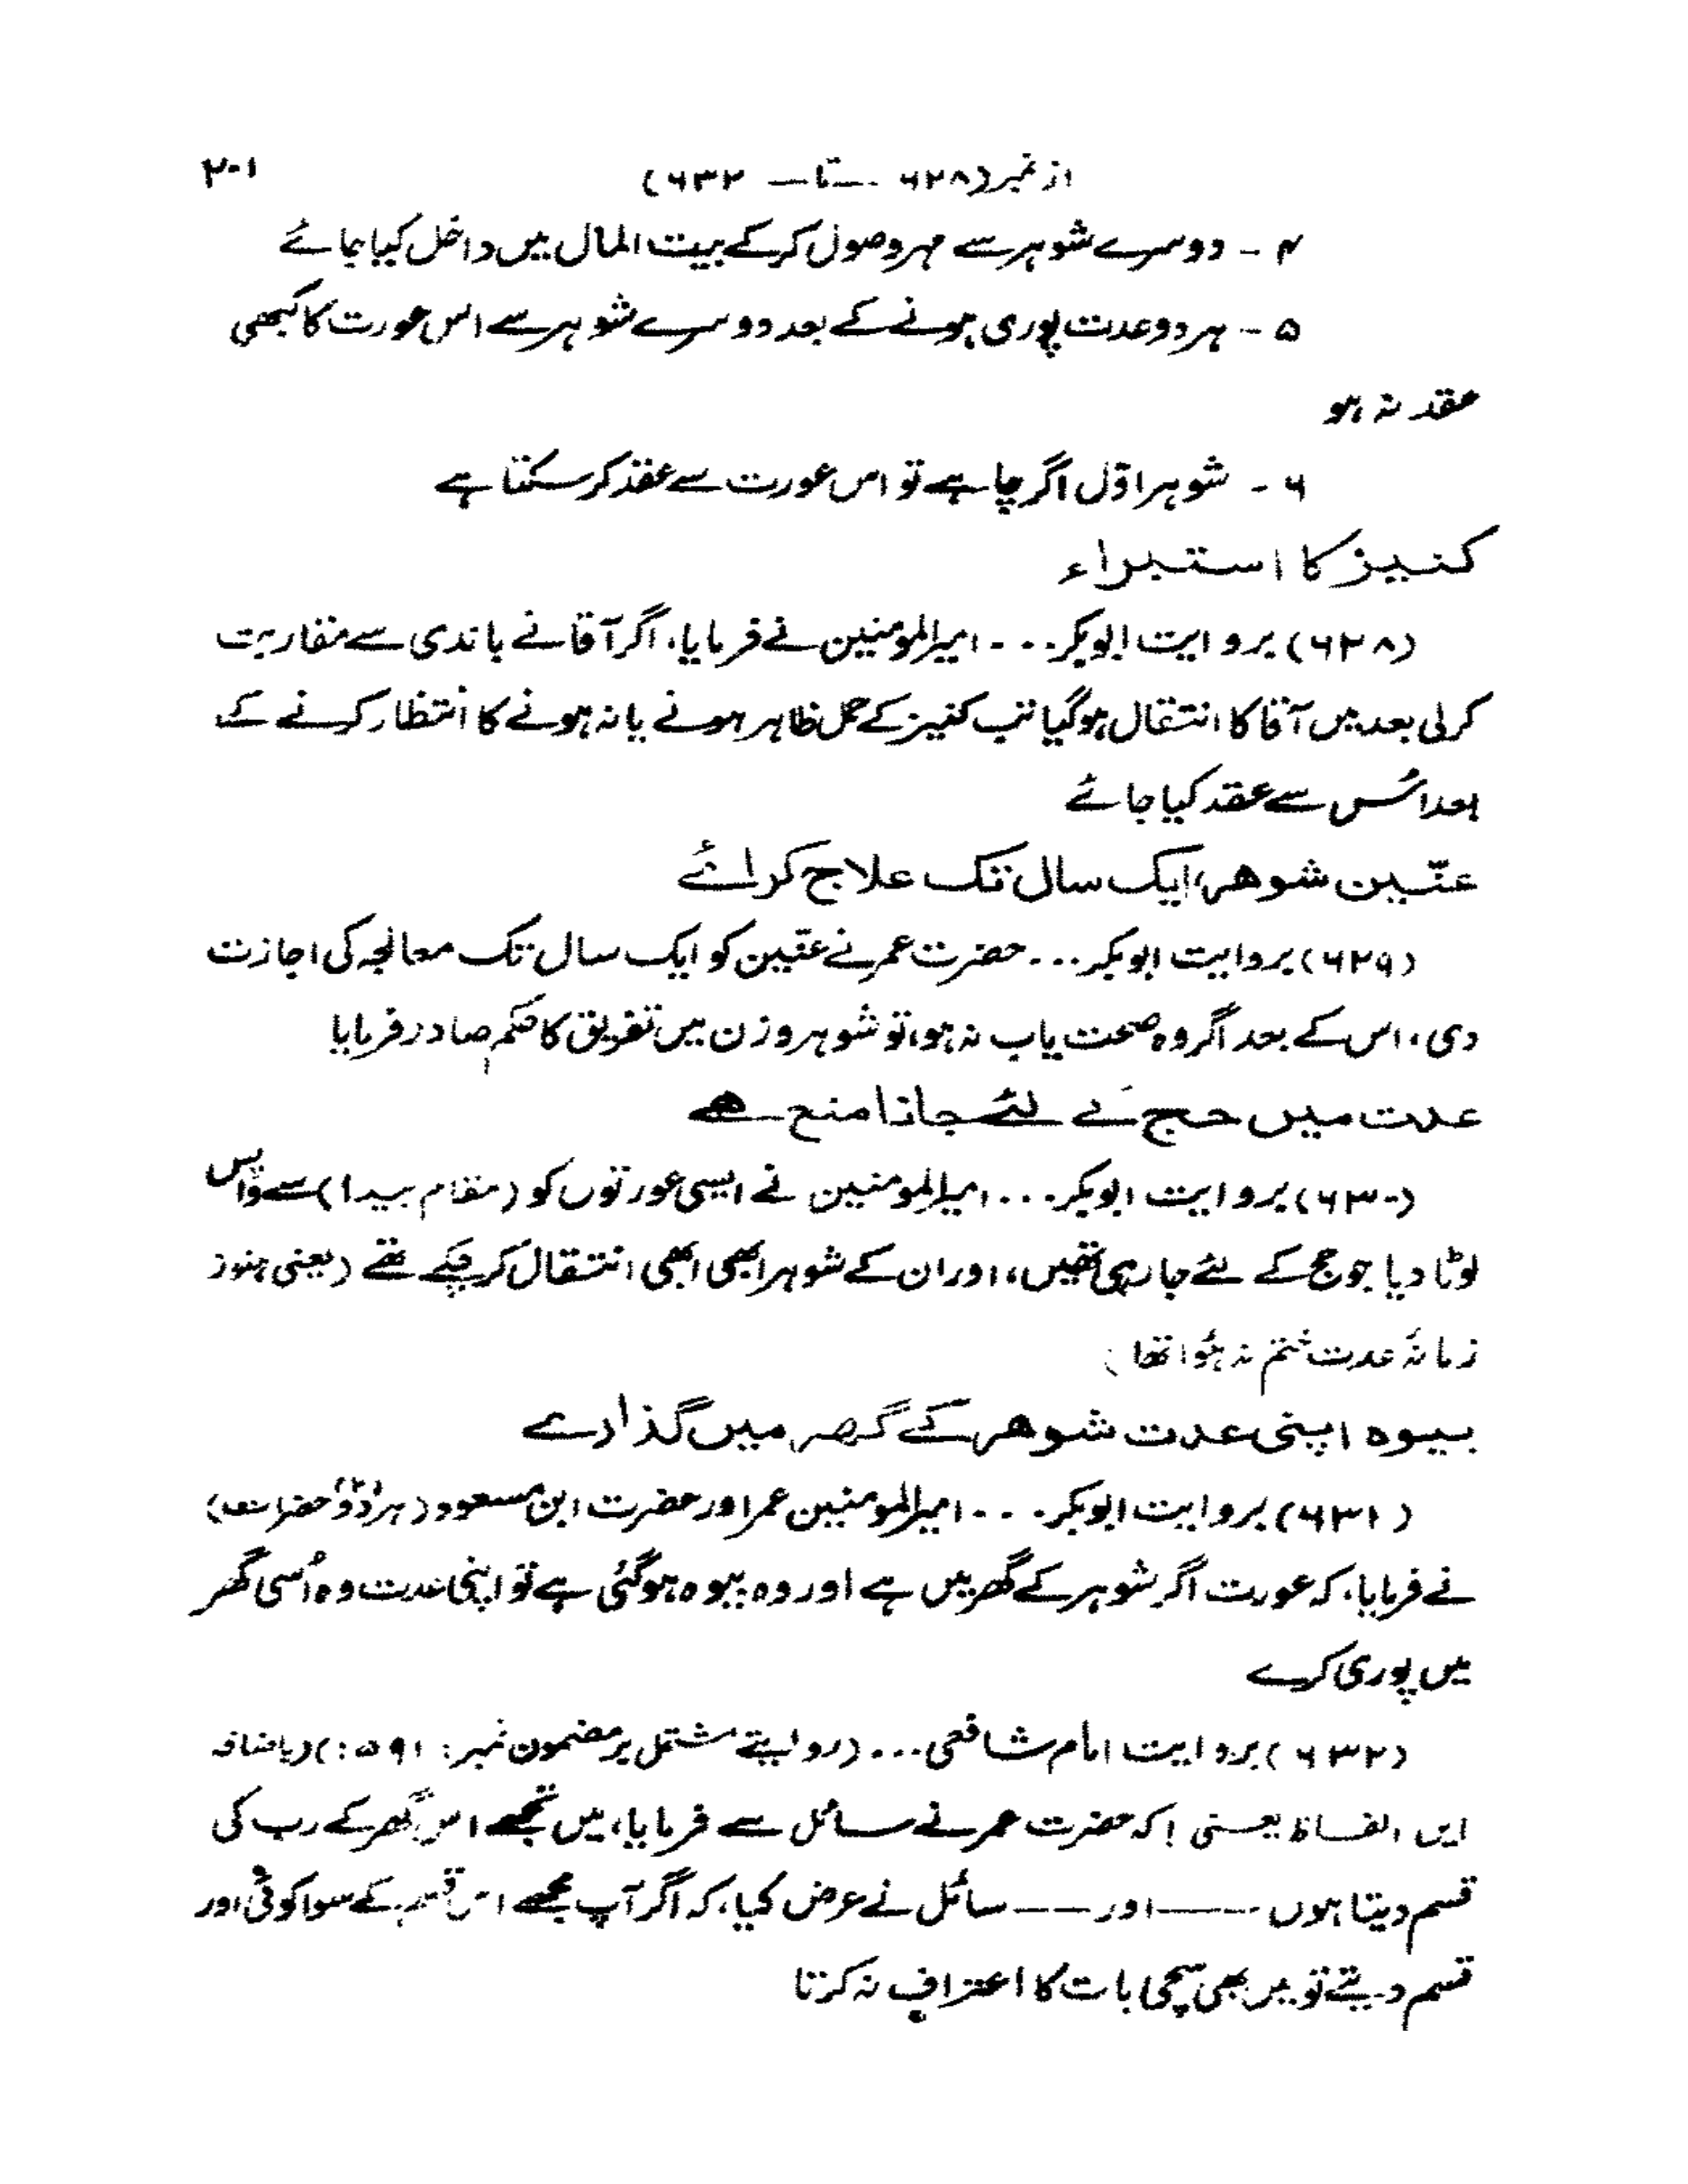 از نمبر (۶۲۸ — تا — ۶۳۲) ۲۰۱
۴ - دوسرے شوہر سے مہر وصول کر کے بیت المال میں داخل کیا جائے
۵ - ہر دو عدت پوری ہونے کے بعد دوسرے شوہر سے اس عورت کا کبھی
عقد نہ ہو
۶ - شوہر اوّل اگر چاہے تو اس عورت سے عقد کر سکتا ہے
کنیز کا استبراء
(۶۲۸) بروایت ابوبکر... امیرالمومنین نے فرمایا، اگر آقا نے باندی سے مقاربت
کر لی بعد میں آقا کا انتقال ہو گیا تب کنیز کے حمل ظاہر ہونے یا نہ ہونے کا انتظار کرنے کے
بعد اُس سے عقد کیا جائے
عنّین شوھر، ایک سال تک علاج کرائے
(۶۲۹) بروایت ابوبکر... حضرت عمر نے عنّین کو ایک سال تک معالجہ کی اجازت
دی، اس کے بعد اگر وہ صحت یاب نہ ہو، تو شوہر و زن میں تفریق کا حکم صادر فرمایا
عدت میں حج کے لئے جانا منع ھے
(۶۳۰) بروایت ابوبکر... امیرالمومنین نے ایسی عورتوں کو (مقام بیدا) سے واپس
لوٹا دیا جو حج کے لئے جا رہی تھیں، اور ان کے شوہر ابھی ابھی انتقال کر چکے تھے (یعنی ہنوز
زمانۂ عدت ختم نہ ہُوا تھا)
بیوہ اپنی عدت شوھر کے گھر میں گذارے
(۶۳۱) بروایت ابوبکر... امیرالمومنین عمر اور حضرت ابن مسعود (ہر دو (۲) حضرات)
نے فرمایا، کہ عورت اگر شوہر کے گھر میں ہے اور وہ بیوہ ہو گئی ہے تو اپنی عدت وہ اُسی گھر
میں پوری کرے
(۶۳۲) بروایت امام شافعی... (روایتے مشتمل بر مضمون نمبر: ۵۹۱:) (باضافہ
ایں الفاظ یعنی! کہ حضرت عمر نے سائل سے فرمایا، میں تجھے اس گھر کے رب کی
قسم دیتا ہوں —— اور —— سائل نے عرض کیا، کہ اگر آپ مجھے اس قسم کے سوا کوئی اور
قسم دیتے تو میں بھی سچی بات کا اعتراف نہ کرتا